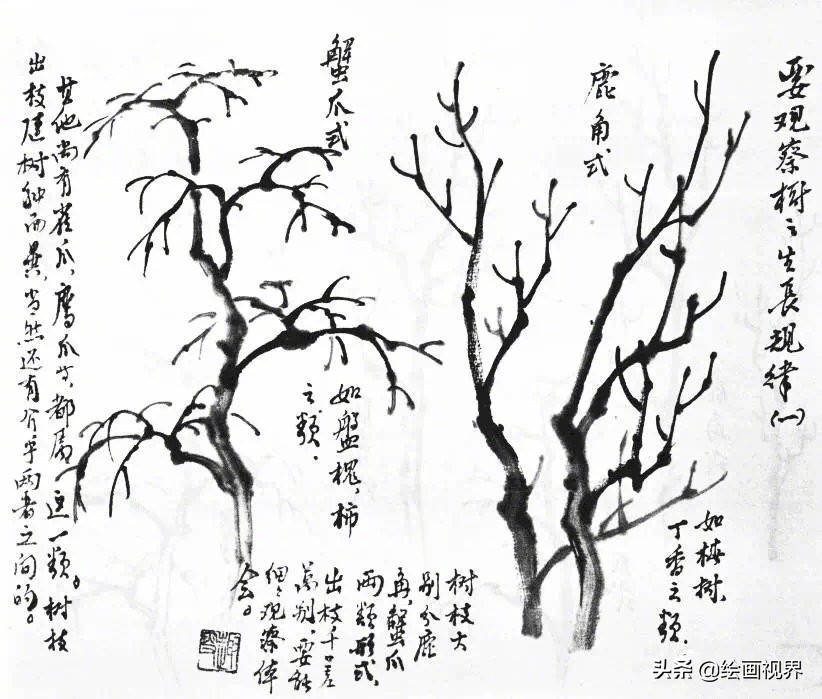 要观察树之生長规律(一)
鹿角式
如梅树、
丁香之類.
蟹爪式
如盤槐,柿
之類.
树枝大
别分鹿
角,蟹爪
两類形式,
出枝千差
萬别,要能
细々观察体
会。
其他尚有雀爪、鹰爪等都属这一類。树枝
出枝随树种而異,当然还有介乎两者之间的。
头条 @绘画视界